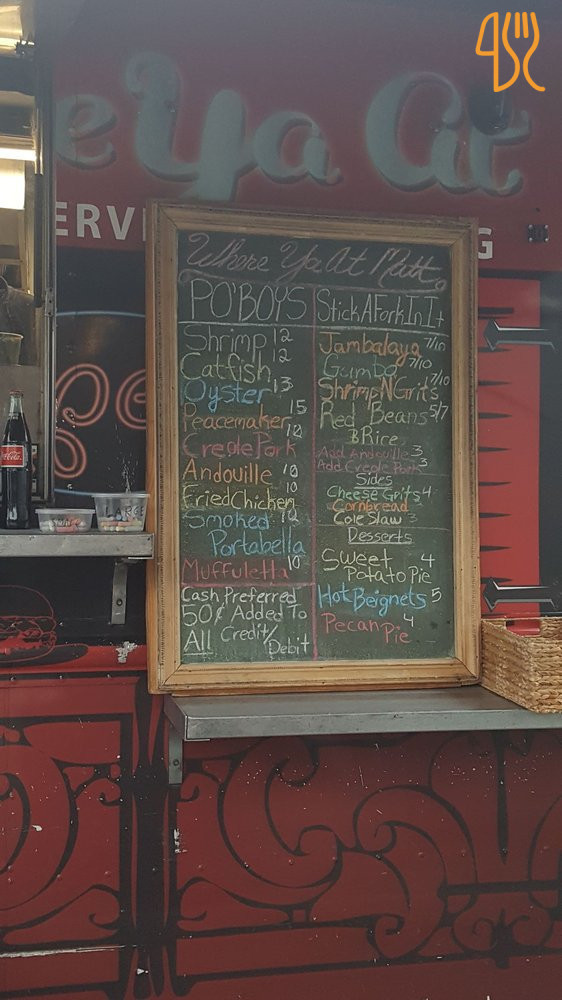 e Ya at
ERVI
G
Where Ya At Matt
PO'BOYS
Shrimp 12
Catfish 12
Oyster 13
Peacemaker 15
Creole Pork 10
Andouille 10
Fried Chicken 10
Smoked 12
Portabella
Muffuletta 10
Cash Preferred
50¢ Added To
All Credit/Debit
StickAForkInIt
Jambalaya 7/10
Gumbo 7/10
Shrimp N Grits 7/10
Red Beans 5/7
& Rice
Add Andouille 3
Add Creole Pork 3
Sides
Cheese Grits 4
Cornbread
Cole Slaw 3
Desserts
Sweet 4
Potato Pie
Hot Beignets 5
Pecan Pie 4
Coca-Cola